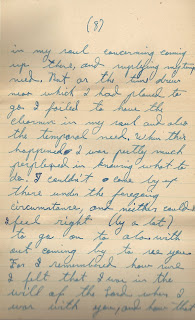 (8)
in my soul concerning coming
up there, and supplying my
need. But as the time drew
near which I had planed to
go I failed to have the
clearness in my soul and also
the temporal need. When this
happened I was pretty much
perplexed in knowing what to
do. I couldn't come by
there under the foregoing
circumstance, and neither could
I feel right (by a lot)
to go on to with
out coming by to see you.
For I remembered how sure
I felt that I was in the
will of the Lord when I
was with you, and how the